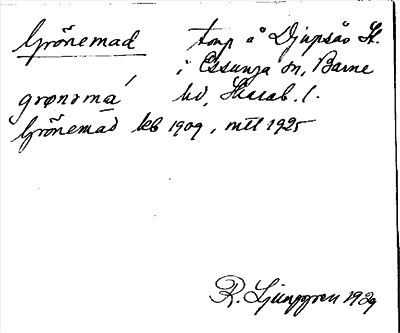 Grönemad torp å Djupsås St.
i Essunga sn, Barne
grønəma hd, Skarab. l.
Grönemad keb 1909, mtl 1925
R. Ljunggren 1929